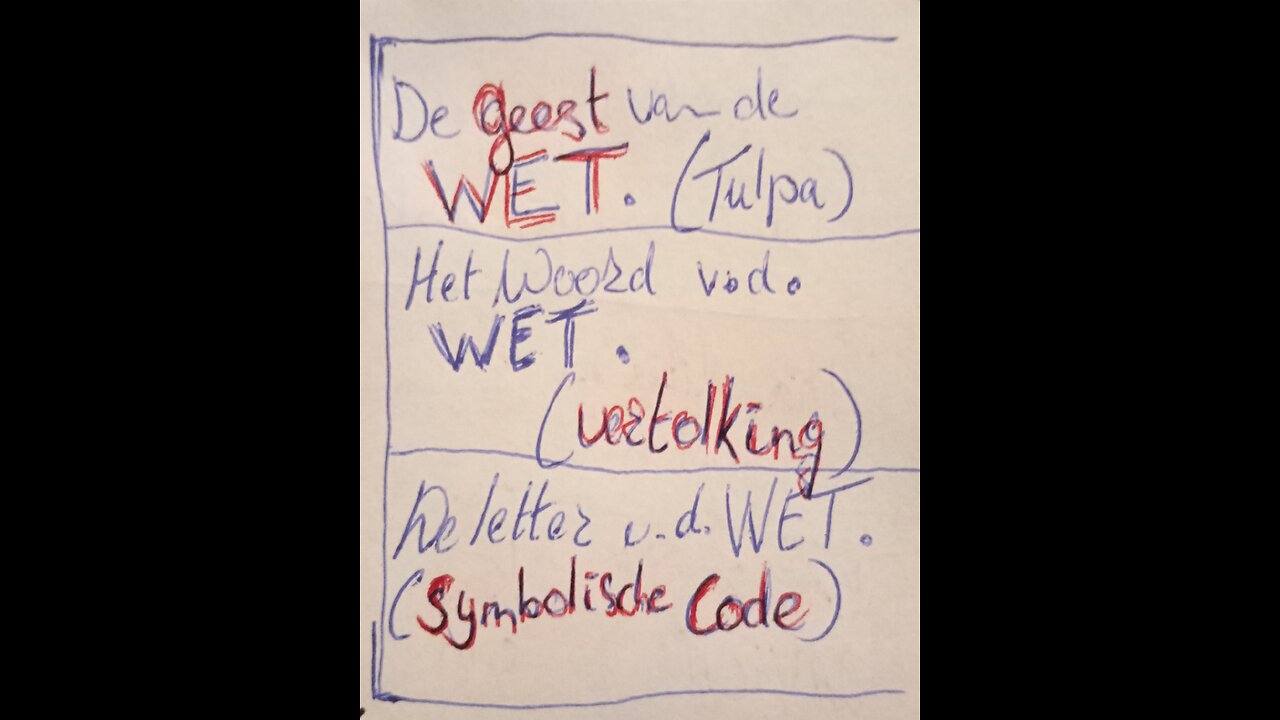 De geest van de
WET. (Tulpa)
Het Woord v.d.
WET.
(vertolking)
De letter v.d. WET.
(Symbolische Code)